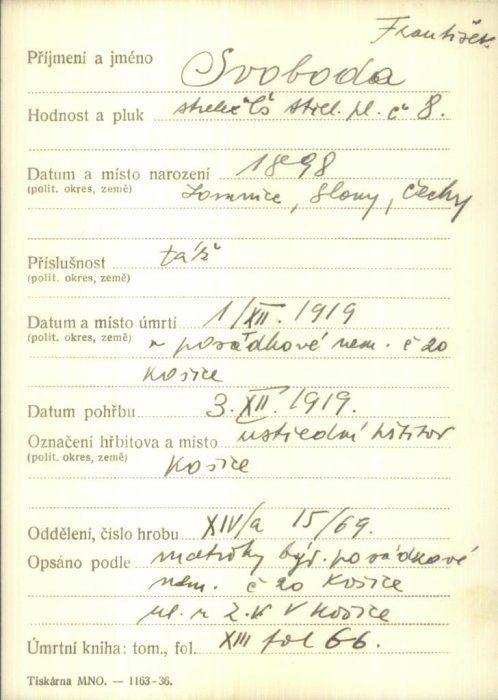 František
Příjmení a jméno Svoboda
Hodnost a pluk střel. pl. č 8.
Datum a místo narození 1898
(polit. okres, země) Lomnice, Slaný, Čechy
Příslušnost táž
(polit. okres, země)
Datum a místo úmrtí 1/XII. 1919
(polit. okres, země) v pořádkové nem. č 20
Košice
Datum pohřbu 3. XII. 1919.
Označení hřbitova a místo ústřední hřbitov
(polit. okres, země) Košice
Oddělení, číslo hrobu XIV/a 15/69.
Opsáno podle matriky býv. pořádkové
nem. č 20 Košice
V Košice
Úmrtní kniha: tom., fol. XIII fol 66.
Tiskárna MNO. — 1163-36.